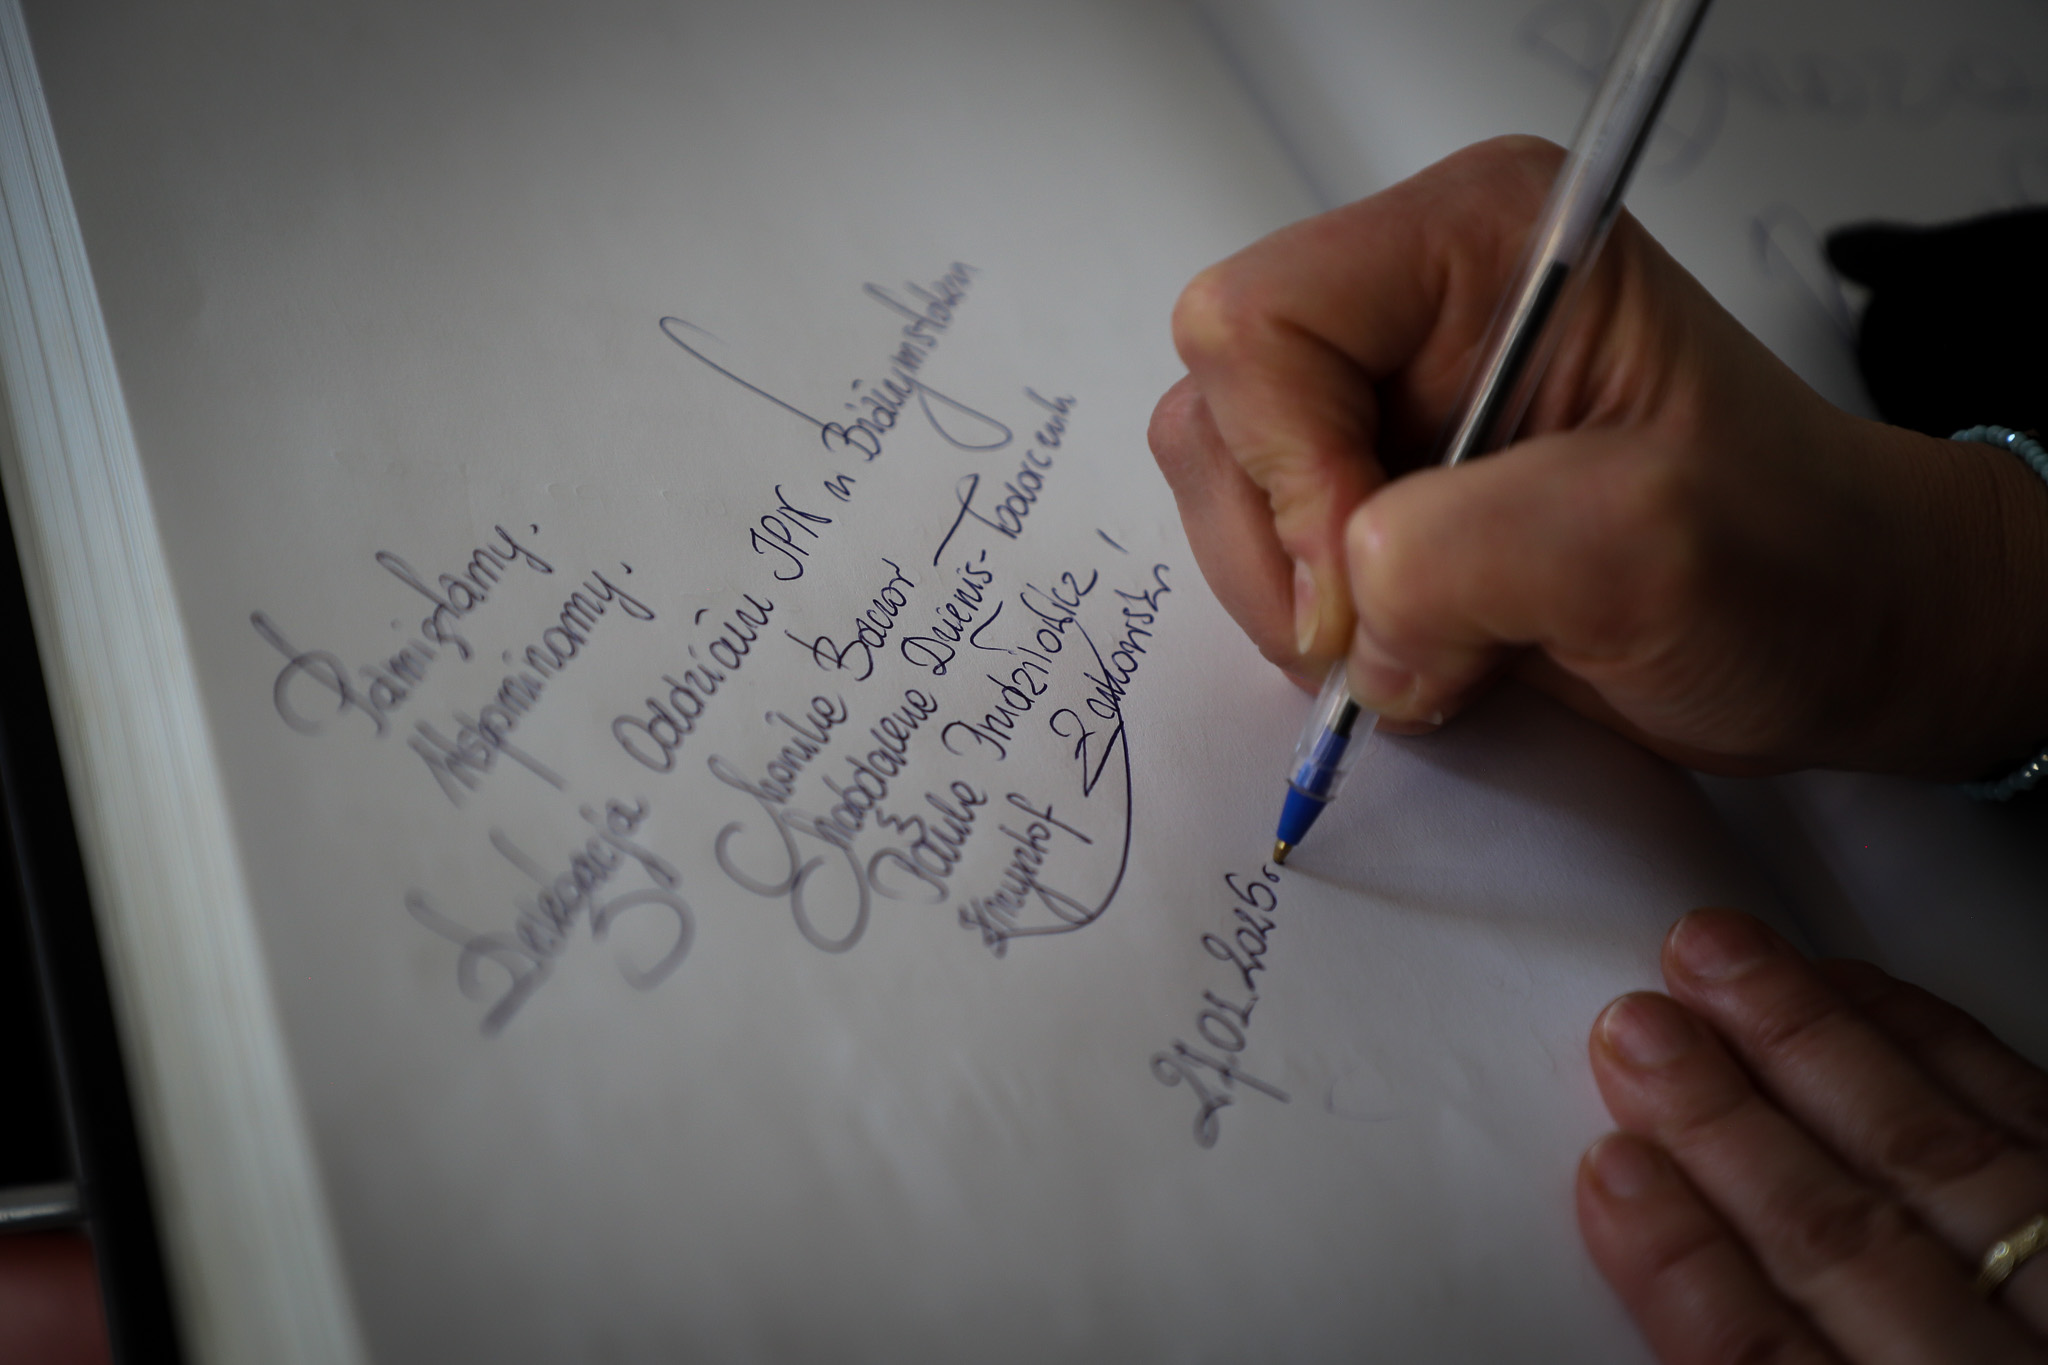 Pamiętamy.
Wspominamy.
Delegacja Oddziału IPN w Białymstoku
Monika Bacior
Magdalena Dzienis-Todorczuk
Paula Prudziłowicz
Krzysztof Zankowski
27.01.2026.